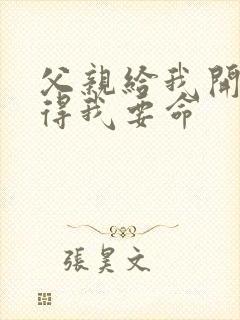 父親給我開
得我要命
張昊文